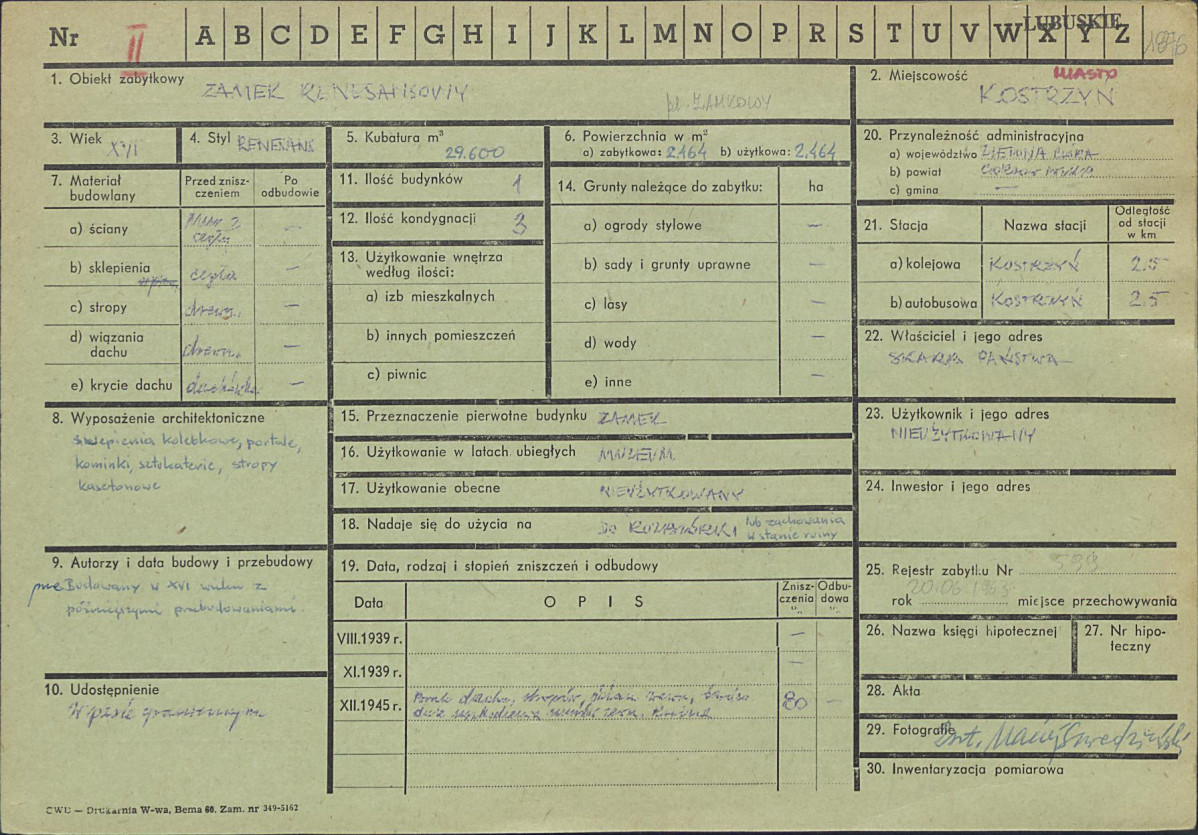 Nr II A B C D E F G H I J K L M N O P R S T U V W X Y Z LUBUSKIE
1. Obiekt zabytkowy ZAMEK RENESANSOWY
pl. ZAMKOWY
2. Miejscowość MIASTO
KOSTRZYN
3. Wiek XVI
4. Styl RENESANS
5. Kubatura m³
29.600
6. Powierzchnia w m²
a) zabytkowa: 2.464 b) użytkowa: 2.464
20. Przynależność administracyjna
a) województwo ZIELONA GÓRA
b) powiat
c) gmina —
7. Materiał budowlany
Przed zniszczeniem
Po odbudowie
a) ściany cegła —
b) sklepienia cegła —
c) stropy drewn. —
d) wiązania dachu drewn. —
e) krycie dachu dachówka —
11. Ilość budynków 1
12. Ilość kondygnacji 3
13. Użytkowanie wnętrza
według ilości:
a) izb mieszkalnych
b) innych pomieszczeń
c) piwnic
14. Grunty należące do zabytku: ha
a) ogrody stylowe —
b) sady i grunty uprawne —
c) lasy —
d) wody —
e) inne —
21. Stacja Nazwa stacji Odległość
od stacji
w km
a) kolejowa KOSTRZYN 2.5
b) autobusowa KOSTRZYN 2.5
22. Właściciel i jego adres
SKARB PAŃSTWA
8. Wyposażenie architektoniczne
sklepienia kolebkowe, portale,
kominki, sztukaterie, stropy
kasetonowe
15. Przeznaczenie pierwotne budynku ZAMEK
16. Użytkowanie w latach ubiegłych MUZEUM
17. Użytkowanie obecne NIEUŻYTKOWANY
18. Nadaje się do użycia na DO ROZBIÓRKI lub zachowania
w stanie ruiny
23. Użytkownik i jego adres
NIEUŻYTKOWANY
24. Inwestor i jego adres
9. Autorzy i data budowy i przebudowy
Budowany w XVI wieku z
późniejszymi przebudowaniami.
10. Udostępnienie
W pasie granicznym
19. Data, rodzaj i stopień zniszczeń i odbudowy
Data OPIS Zniszczenia % Odbudowa %
VIII.1939 r. —
XI.1939 r. —
XII.1945 r. Brak dachu, stropów,
80 —
25. Rejestr zabytku Nr
20.06.
rok miejsce przechowywania
26. Nazwa księgi hipotecznej
27. Nr hipoteczny
28. Akta
29. Fotografie
30. Inwentaryzacja pomiarowa
CWD — Drukarnia W-wa, Bema 60. Zam. nr 349-5162